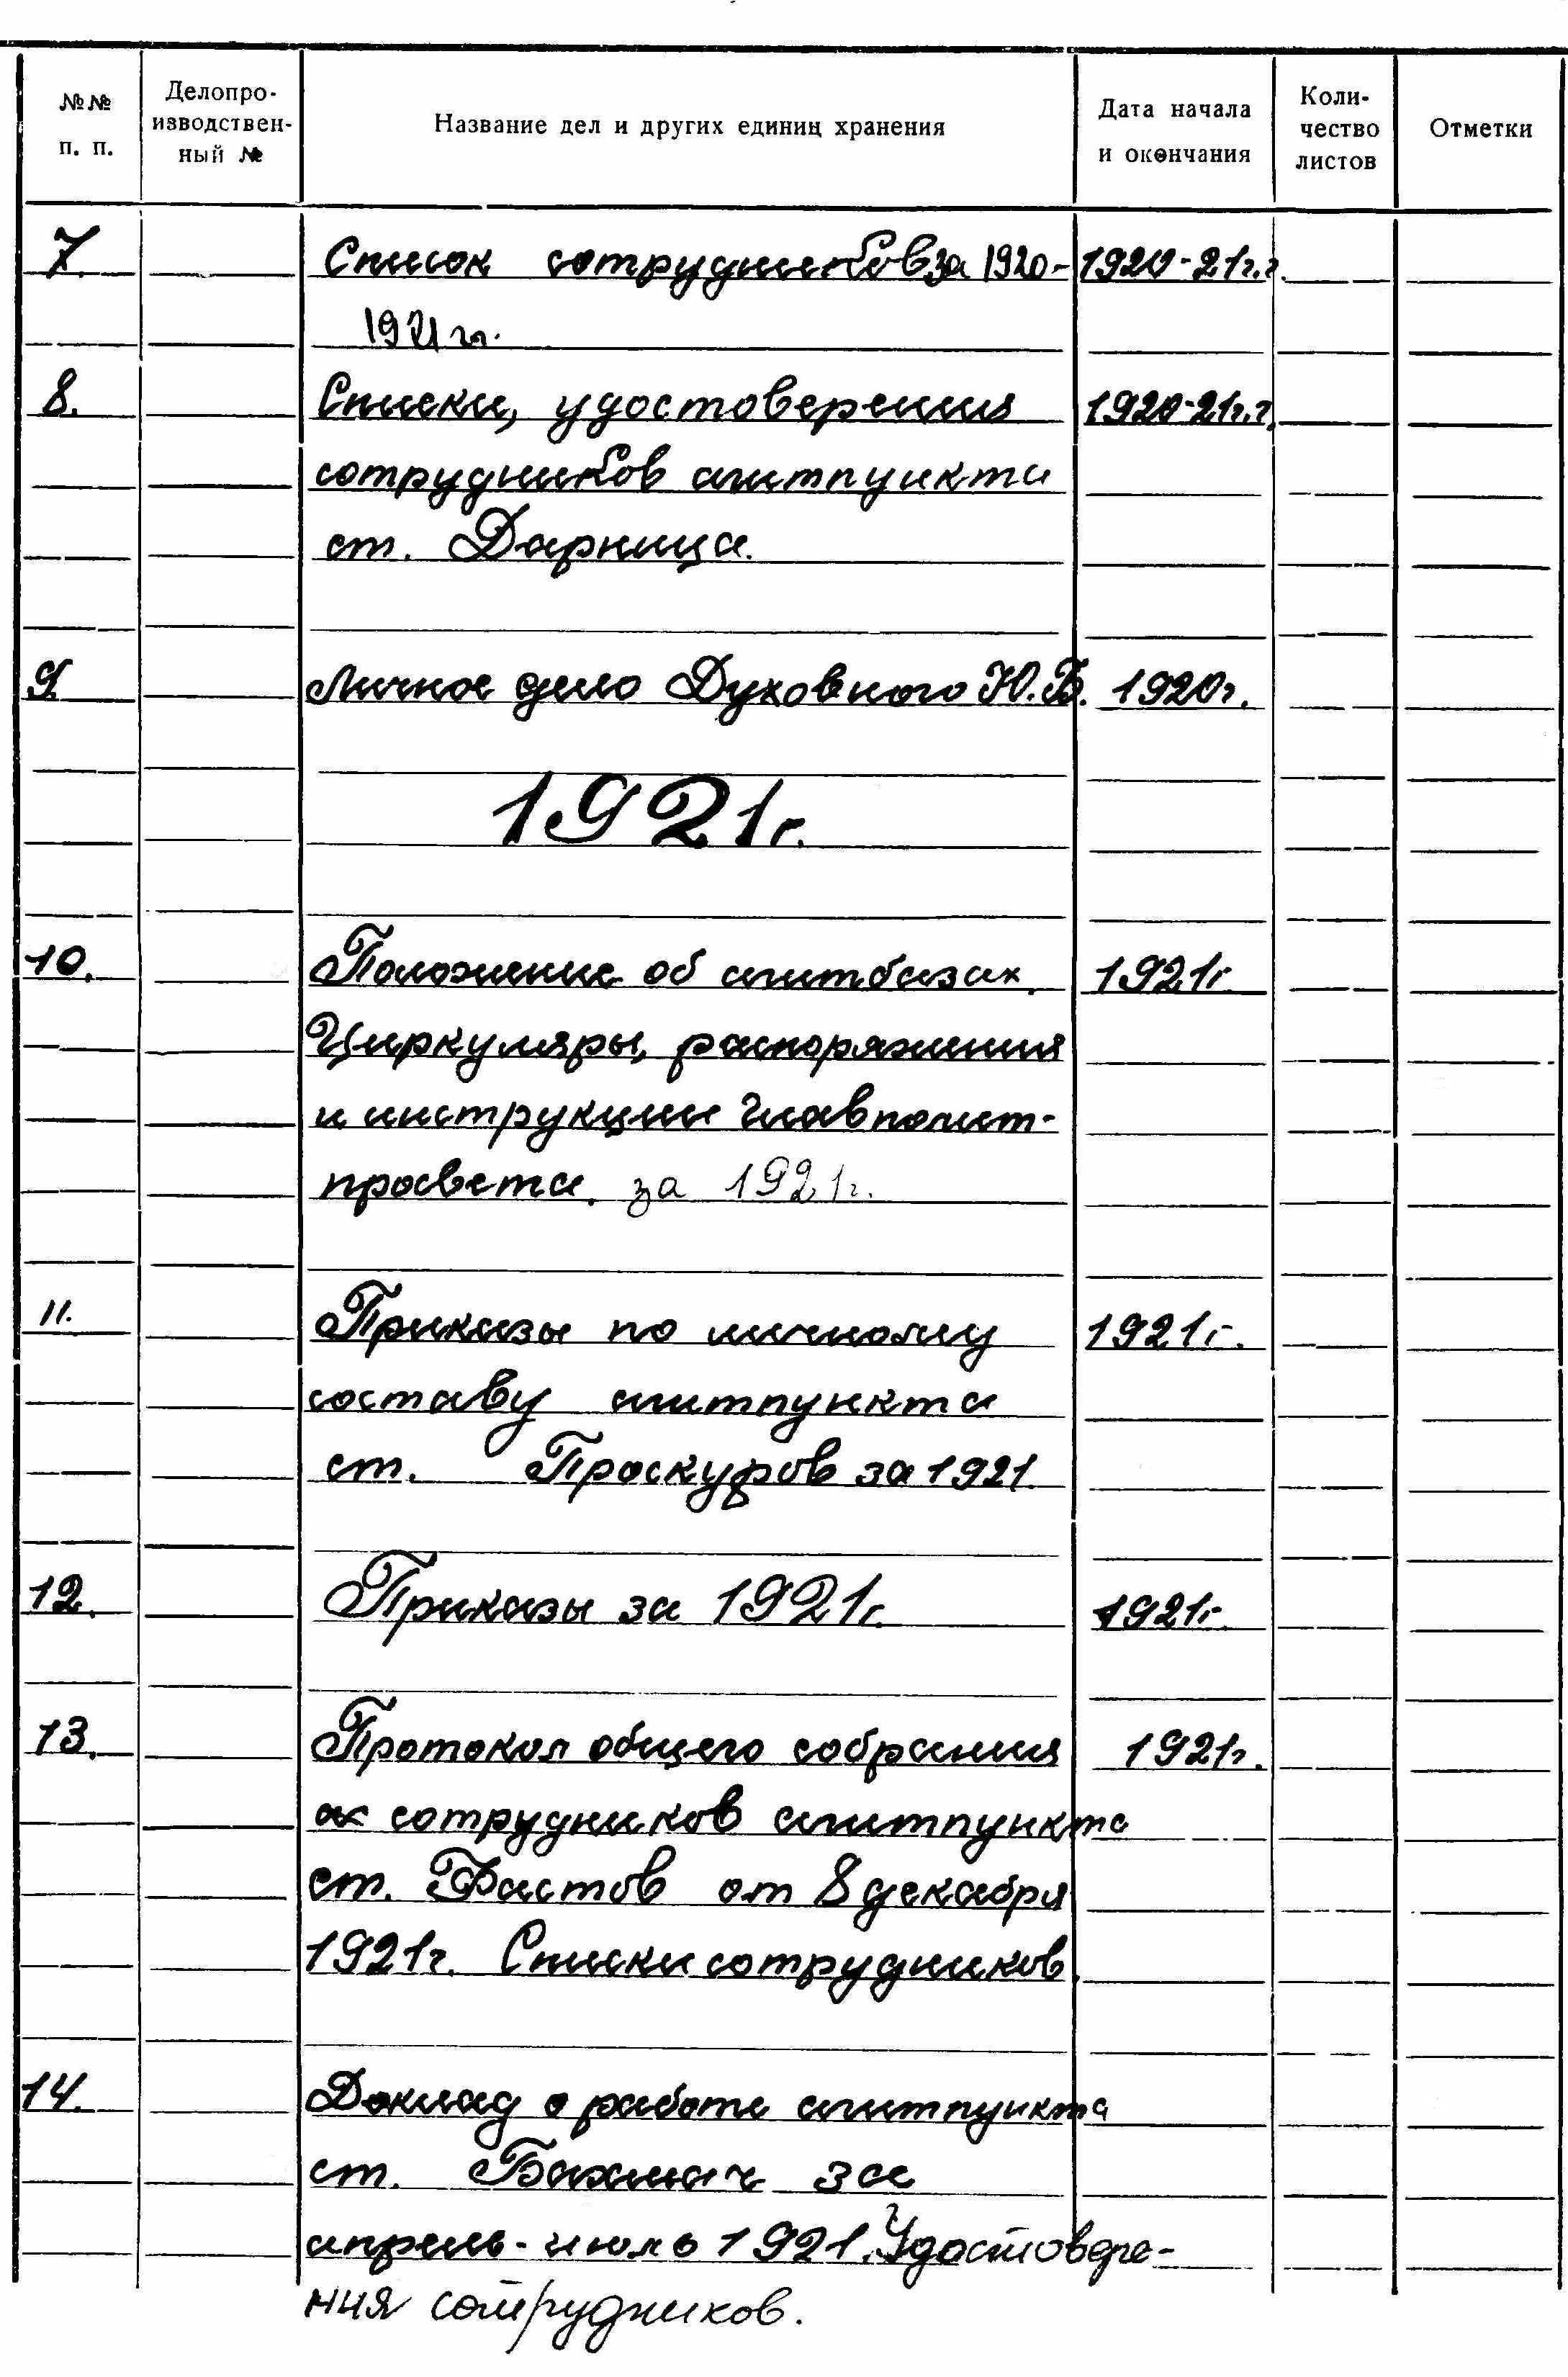 №№ п. п. Делопро- изводствен- ный № Название дел и других единиц хранения Дата начала и окончания Коли- чество листов Отметки
7. Список сотрудников за 1920- 1920-21г.г.
1921 гг.
8. Списки, удостоверения 1920-21г.г.
сотрудников агитпункта
ст. Дарница.
9. Личное дело Духовного Ю.Б. 1920г.
1921г.
10. Положение об агитбазах. 1921г.
Циркуляры, распоряжения
и инструкции Главполит-
просвета. за 1921г.
11. Приказы по личному 1921г.
составу агитпункта
ст. Проскуров за 1921.
12. Приказы за 1921г. 1921г.
13. Протокол общего собрания 1921г.
сотрудников агитпункта
ст. Фастов от 8 декабря
1921г. Списки сотрудников.
14. Доклад о работе агитпункта
ст. Бахмач за
апрель-июль 1921. Удостовере-
ния сотрудников.